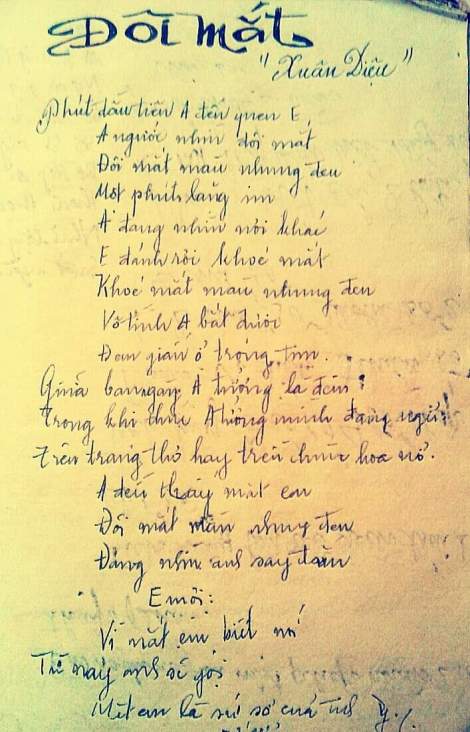 Đôi mắt
"Xuân Diệu"
Phút đầu tiên A đến quen E
A ngước nhìn đôi mắt
Đôi mắt màu nhung đen
Một phút lặng im
A đang nhìn nơi khác
E đánh rơi khoé mắt
Khoé mắt màu nhung đen
Vô tình A bắt được
Đem giấu ở trong tim.
Giữa ban ngày A tưởng là đêm!
Trong khi thức A tưởng mình đang ngủ!
Trên trang thơ hay trên chùm hoa nở.
A đều thấy mắt em
Đôi mắt màu nhung đen
Đang nhìn anh say đắm
E môi:
Vì mắt em biết nói
Từ nay anh sẽ gọi
Mắt em là xứ sở của tình y./.